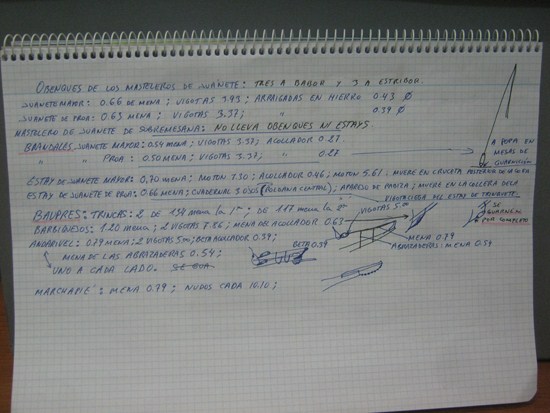 OBENQUES DE LOS MASTELEROS DE JUANETE: TRES A BABOR Y 3 A ESTRIBOR.
JUANETE MAYOR: 0.66 DE MENA; VIGOTAS 3.93; ARRAIGADAS EN HIERRO 0.43 Ø
JUANETE DE PROA: 0.63 MENA; VIGOTAS 3.37; " 0.39 Ø
MASTELERO DE JUANETE DE SOBREMESANA: NO LLEVA OBENQUES NI ESTAYS
BRANDALES JUANETE MAYOR: 0.54 MENA; VIGOTAS 3.37; ACOLLADOR 0.27
" " PROA: 0.50 MENA; VIGOTAS 3.37; " 0.27
A POPA EN
MESAS DE
GUARNICIÓN
ESTAY DE JUANETE MAYOR: 0.70 MENA; MOTON 7.30; ACOLLADOR 0.46; MOTON 5.61. MUERE EN CRUCETA
ESTAY DE JUANETE DE PROA: 0.66 MENA; CUADERNAL 3 OJOS (ROLDANA CENTRAL), APAREJO DE RABIZA; MUERE EN LA
BAUPRES: TRINCAS: 2 DE 1.34 MENA LA 1ª; DE 1.17 MENA LA 2ª
BARBIQUEJOS: 1.20 MENA; 2 VIGOTAS 7.86; MENA DEL ACOLLADOR 0.63
VIGOTAS 5
SE
GUARNEN
POR COMPLETO
ANDARIVEL: 0.79 MENA; 2 VIGOTAS 5; BETA ACOLLADOR 0.39;
BETA 0.39
MENA 0.79
ABRAZADERAS: MENA 0.54
MENA DE LAS ABRAZADERAS 0.54.
UNO A CADA LADO.
MARCHAPIÉ: MENA 0.79; NUDOS CADA 10.10;